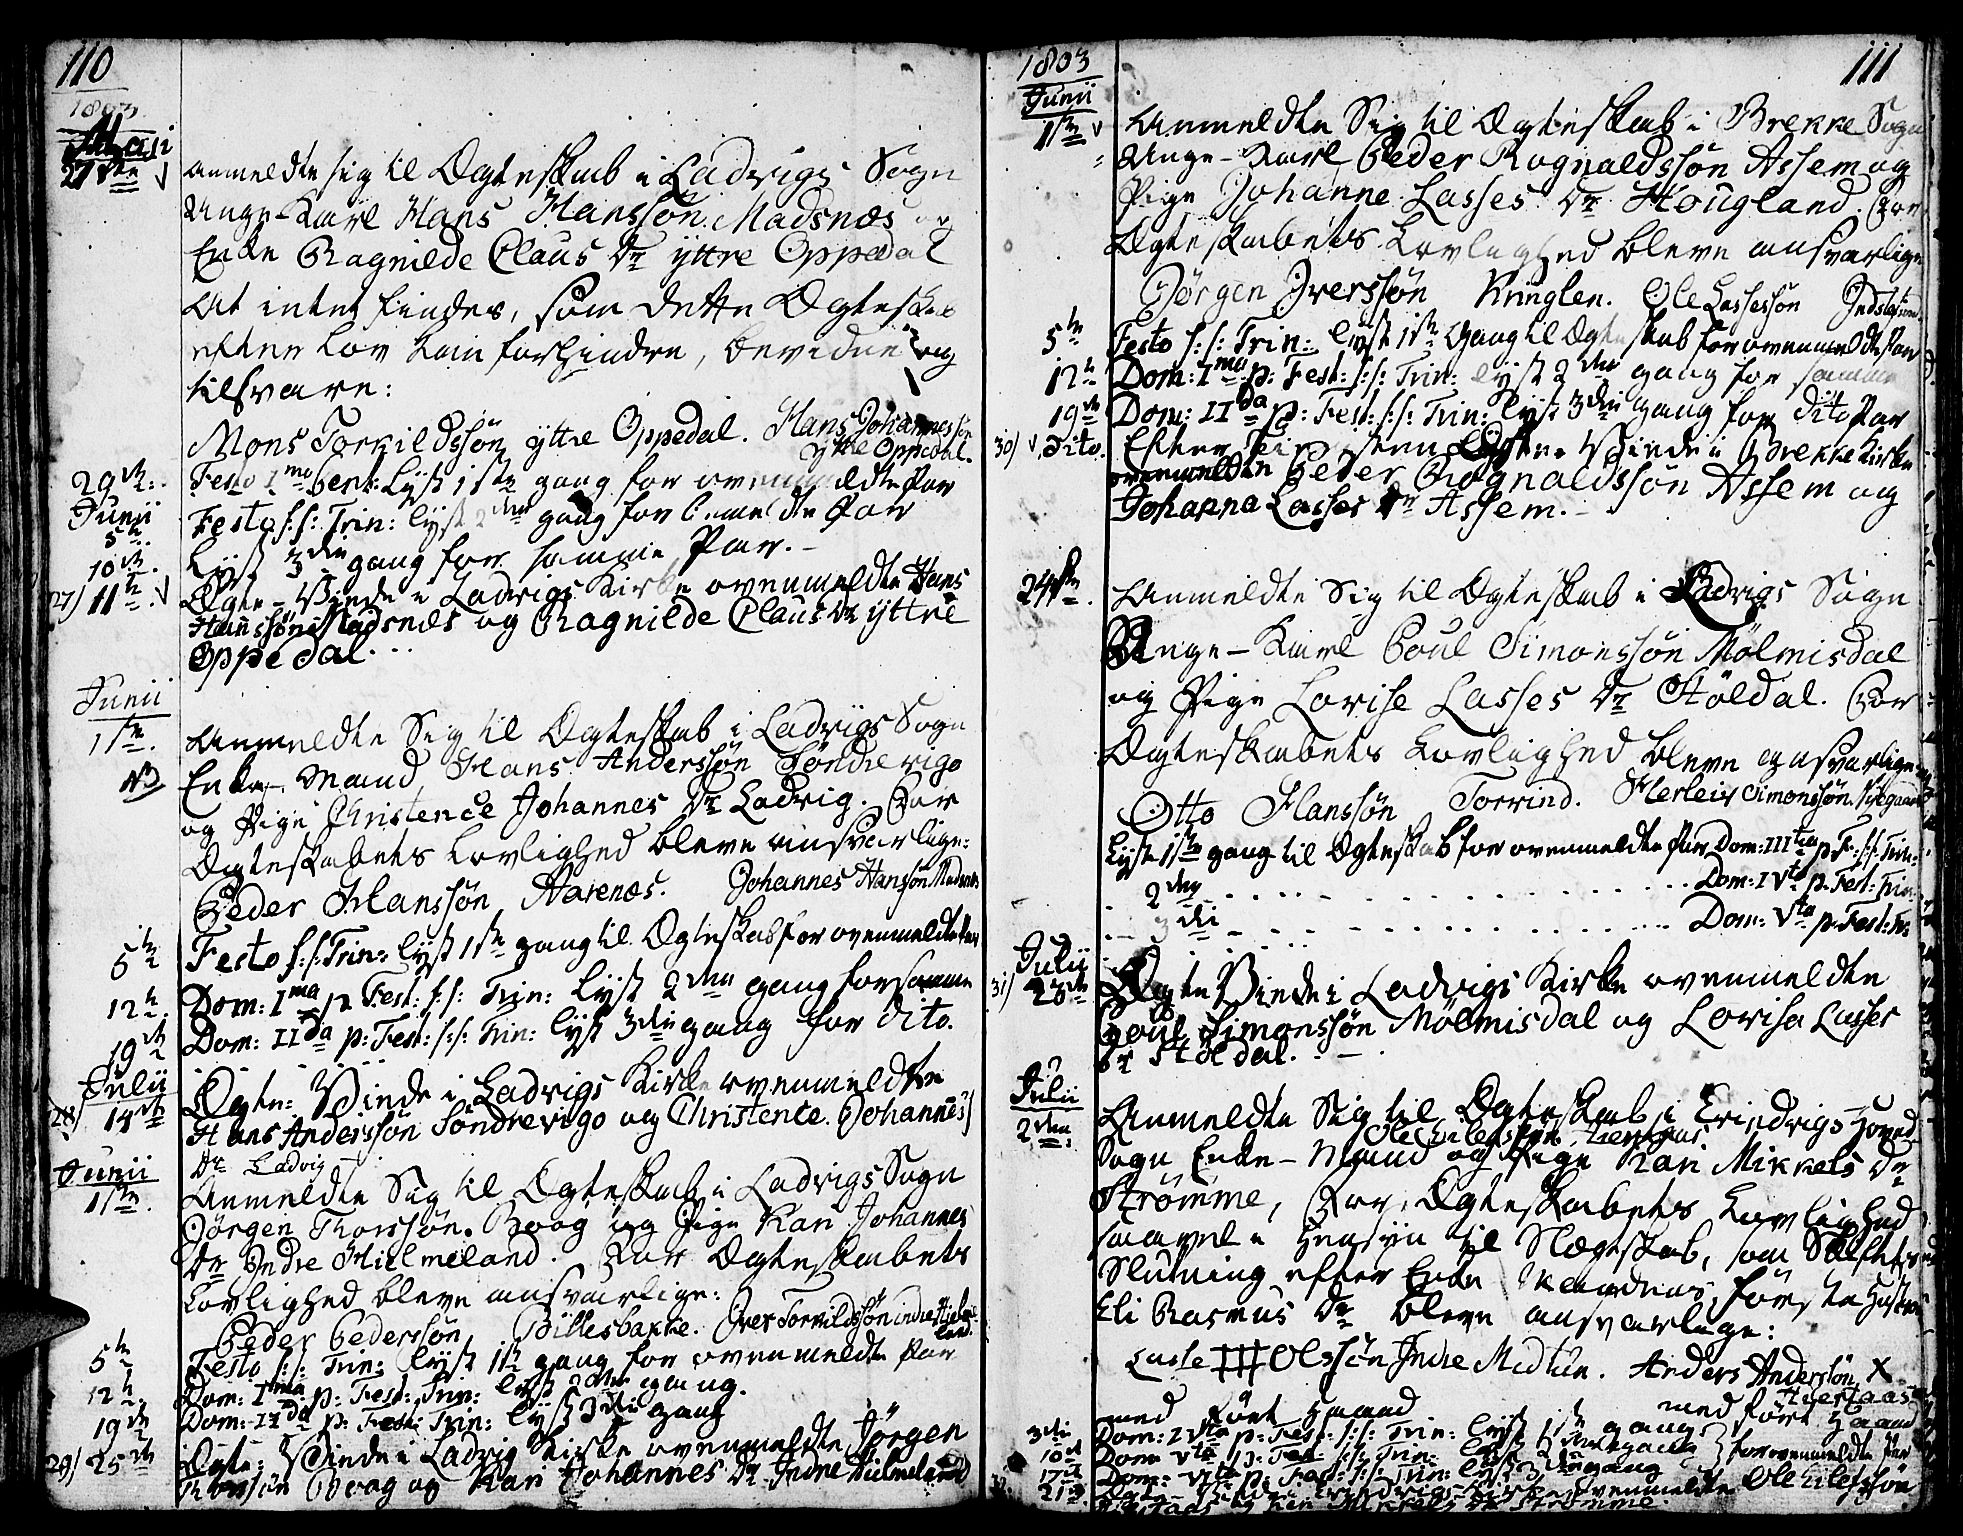 110
1803
Maji
27de anmeldte sig til Ægteskab i Ladvigs Sogn
Unge-Karl Hans Hanssøn Madsnæs og
Enke Ragnilde Claus Dr ÿttre Oppedal
At intet findes, som dette Ægteskab
efter Lov kan forhindre, bevidne og
tilsvare:
Mons Torkildssøn ÿttre Oppedal. Hans Johannessøn
ÿttre Oppedal.
29de Festo 1ma Pent: Lyst 1ste gang for ovenmeldte Par
Junii
5te Festo s:s: Trin: lyst 2den gang for bemeldte Par
10de Lyst 3die gang for samme Par.
27) 11te Ægte-Viede i Ladvigs Kirke ovenmeldte Hans
Hanssøn Madsnæs og Ragnilde Claus Dr ÿttre
Oppedal.
Junii
1ste Anmeldte Sig til Ægteskab i Ladvigs Sogn
NB Enke-Mand Hans Anderssøn Søndrevigo
og Pige Christence Johannes Dr Ladvig. For
Ægteskabets Lovlighed bleve ansvarlige:
Peder Hanssøn Harenæs. Johannes Hanssøn Madsnæs
5te Festo s:s: Trin: lyst 1ste gang til Ægteskab for ovenmeldte Par
12te Dom: Ima p Fest: s:s: Trin: lyst 2den gang for samme
19de Dom: IIda p: Fest: s:s: Trin: lyst 3die gang for dito.
Julii
28) 14de Ægte-Viede i Ladvigs Kirke ovenmeldte
Hans Anderssøn Søndrevigo og Christence Johannes
Dr Ladvig
Junii
1ste Anmeldte Sig til Ægteskab i Ladvigs Sogn
Jörgen Thorssøn Boog og Pige Kari Johannes
Dr Indre Hielmeland. For Ægteskabets
Lovlighed bleve ansvarlige:
Peder Pederssøn Billesbakke. Iver Torkildssøn indre Hielmeland.
5te Festo s:s: Trin: lyst 1ste gang for ovenmeldte Par
12te Dom: Ima p: Fest: Trin: lyst 2den gang.
19de Dom: IIda p: Fest: Trin: lyst 3die gang
29) 25de Ægte-Viede i Ladvig Kirke ovenmeldte Jörgen
Thorssøn Boog og Kari Johannes Dr Indre Hielmeland
1803
111
Junii
1ste Anmeldte Sig til Ægteskab i Brekke Sogn
Unge-Karl Peder Rognaldssøn Assem og
Pige Johanne Lasses Dr Hougland. For
Ægteskabets Lovlighed bleve ansvarlige
Jörgen Iverssøn Kringlen. Ole Lassessøn
5te Festo s:s: Trin: lyst 1ste Gang til Ægteskab for ovenmeldte Par
12te Dom: Ima p: Fest: s:s: Trin: lyst 2den gang for samme
19de Dom: IIda p: Fest: s:s: Trin: lyst 3die gang for dito Par
30) Dito. Efter Ægte-Viede i Brekke Kirke
ovenmeldte Peder Rognaldssøn Assem og
Johanna Lasses Dr Assem.
24de Anmeldte Sig til Ægteskab i Ladvigs Sogn
Unge-Karl Poul Simonssøn Mölmisdal
og Pige Lovise Lasses Dr Stöldal. For
Ægteskabets Lovlighed bleve ansvarlige
Otto Hanssøn Torvind. Herleiv Simonssøn Nÿegaard
Lyst 1ste gang til Ægteskab for ovenmeldte Par, Dom: IIItia p F: s:s: Trin:
2den Dom: IVta p. Fest: Trin:
3die Dom: Vta p. Fest: Tr:
Julii
31) 20de Ægte Viede i Ladvigs Kirke ovenmeldte
Poul Simonssøn Mölmisdal og Lovisa Lasses
Dr Stöldal.
Julii
2den Anmeldte Sig til Ægteskab i Evindvigs Hoved
Sogn Enke-Mand og Pige Kari Mikkels Dr
Strømme, For Ægteskabets Lovlighed
saavel i Hensÿn til Slægtskab, som
Slutning efter Enke Mandens første Hustrue
Eli Rasmus Dr bleve ansvarlige:
Lasse Olssøn Indre Midtun. Anders Anderssøn X
med ført Haand med ført Haand
3die Dom: IVta p: Fest: s:s: Trin: lyst 1ste gang
10de Dom: Vta p: Fest: s:s: Trin: lyst 2den gang for ovenmeldte Par
17de Dom: VIta p: Fest: s:s: Trin: lyst 3die gang
21de Ægte-Viede i Evindvigs Kirke ovenmeldte Ole Eilefssøn
og Kari Mikkels Dr Strømme.